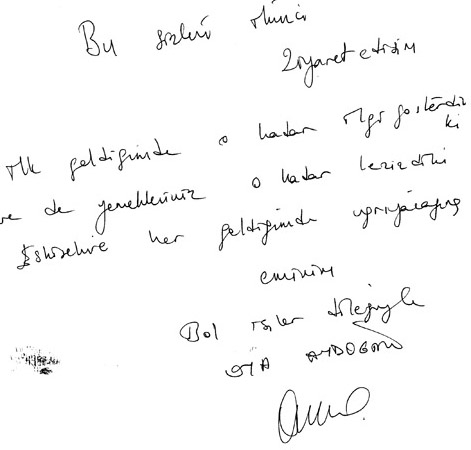 Bu sizleri ikinci
Ziyaret etişim
ilk geldiğimde o kadar ilgi gösterdiniz
ki
ve de yemekleriniz o kadar lezizdiki
Eskişehire her geldiğimde uğrayacağıma
eminim
Bol işler dileğiyle
OYA AYDOĞAN